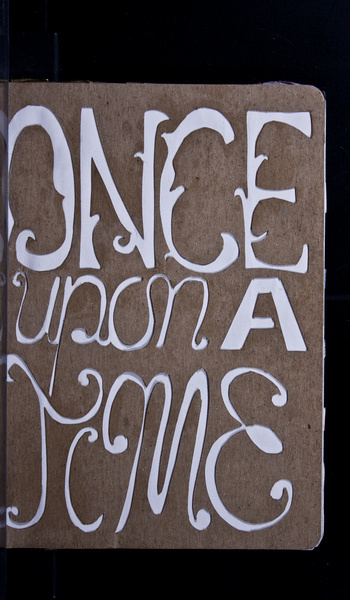 ONCE
upon A
TiME